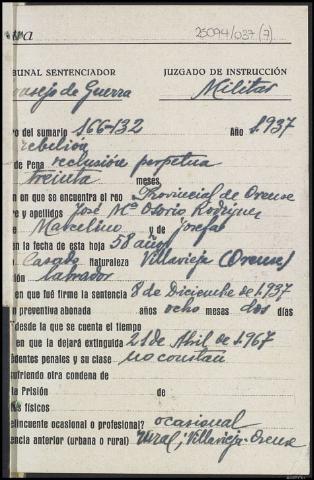 ura 25094/037 (7)
BUNAL SENTENCIADOR JUZGADO DE INSTRUCCIÓN
onsejo de Guerra Militar
ro del sumario 166-132 Año 1.937
rebelión
de Pena reclusión perpetua
treinta meses
n en que se encuentra el reo Provincial de Orense
re y apellidos José Mª Osorio Rodríguez
Marcelino y de Josefa
en la fecha de esta hoja 58 años
Casado Naturaleza Villavieja (Orense)
ión labrador
en que fué firme la sentencia 8 de Diciembre de 1.937
n preventiva abonada años ocho meses dos días
desde la que se cuenta el tiempo
en que la dejará extinguida 21 de Abril de 1.967
edentes penales y su clase no constan
ufriendo otra condena de
la Prisión de
s físicos
elincuente ocasional o profesional? ocasional
encia anterior (urbana o rural) rural, Villavieja-Orense